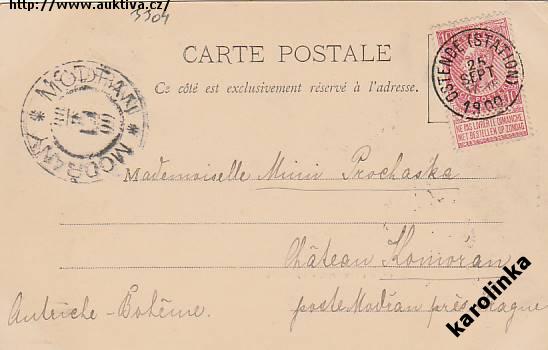 http://www.auktiva.cz/
3304
CARTE POSTALE
Ce côté est exclusivement réservé à l'adresse.
OSTENDE (STATION)
25
SEPT
1900
NE PAS LIVRER LE DIMANCHE
NIET BESTELLEN OP ZONDAG
MODŘAN
MODŘANY
Mademoiselle Mimi Prochaska
Château Komořan
poste Modřan près Prague
Autriche-Bohême.
karolinka